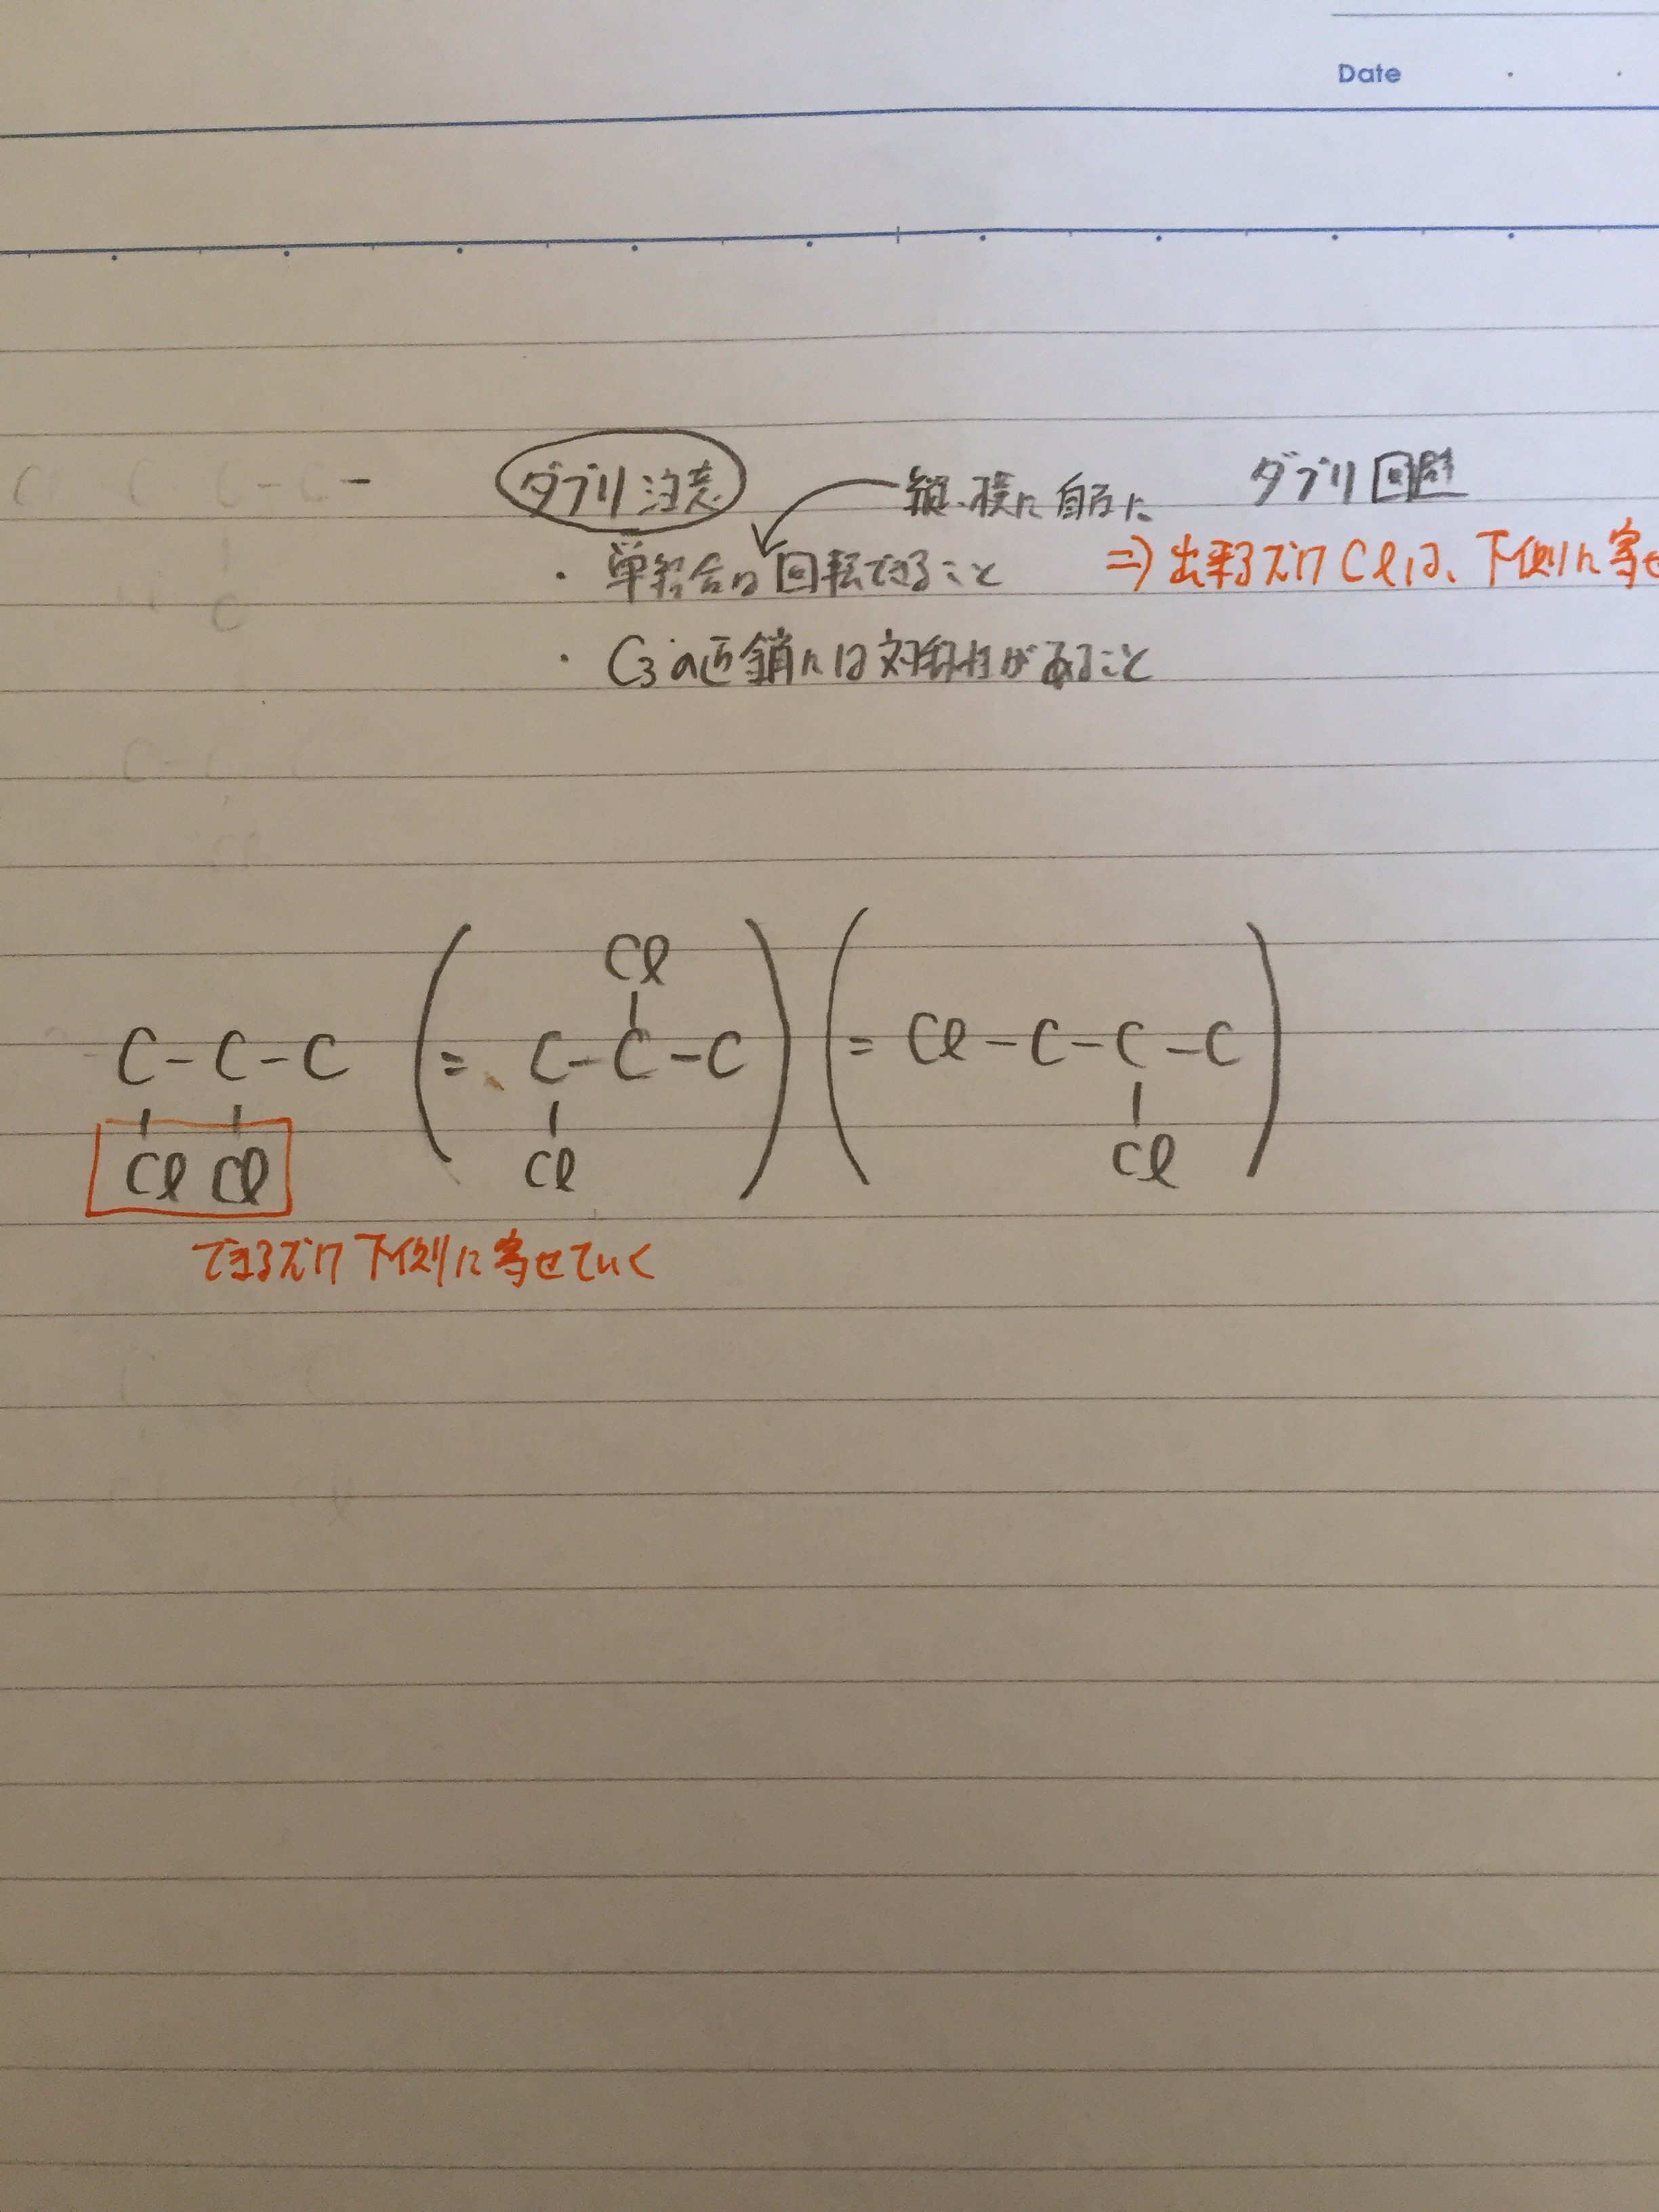 Date
ダブリ注意 縦、横に自在に ダブリ回避
・単結合は回転できること ⇒出来るだけClは、下側に寄せ
・C3の直鎖には対称性があること
Cl
C-C-C (= C-C-C) (= Cl-C-C-C)
Cl Cl Cl Cl
できるだけ下側に寄せていく